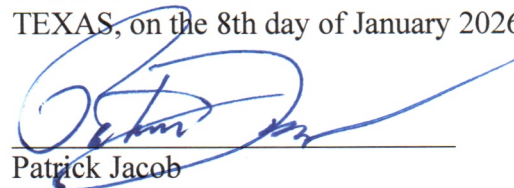 TEXAS, on the 8th day of January 2026
Patrick Jacob